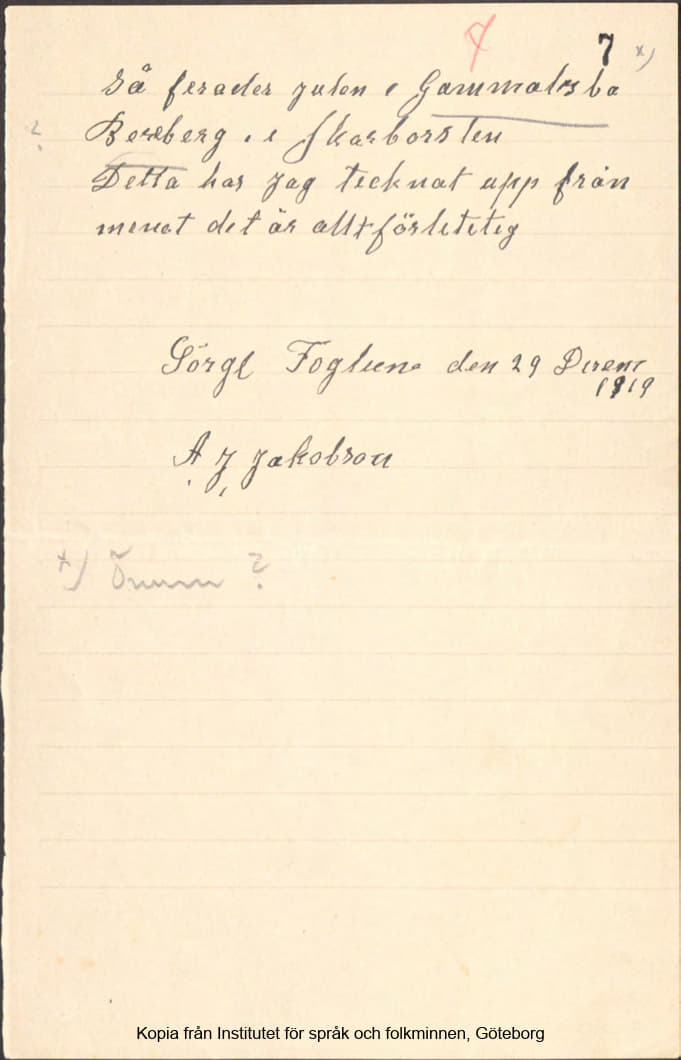 7 7 x)
Så ferades julen i Gammalsba
?
Berberg . i Skarborslen
Detta har jag tecknat upp från
minet det är allt förlititeg
Sörgl Foglum den 29 Desem
1919
A. J. Jakobson
x) Önum ?
Kopia från Institutet för språk och folkminnen, Göteborg